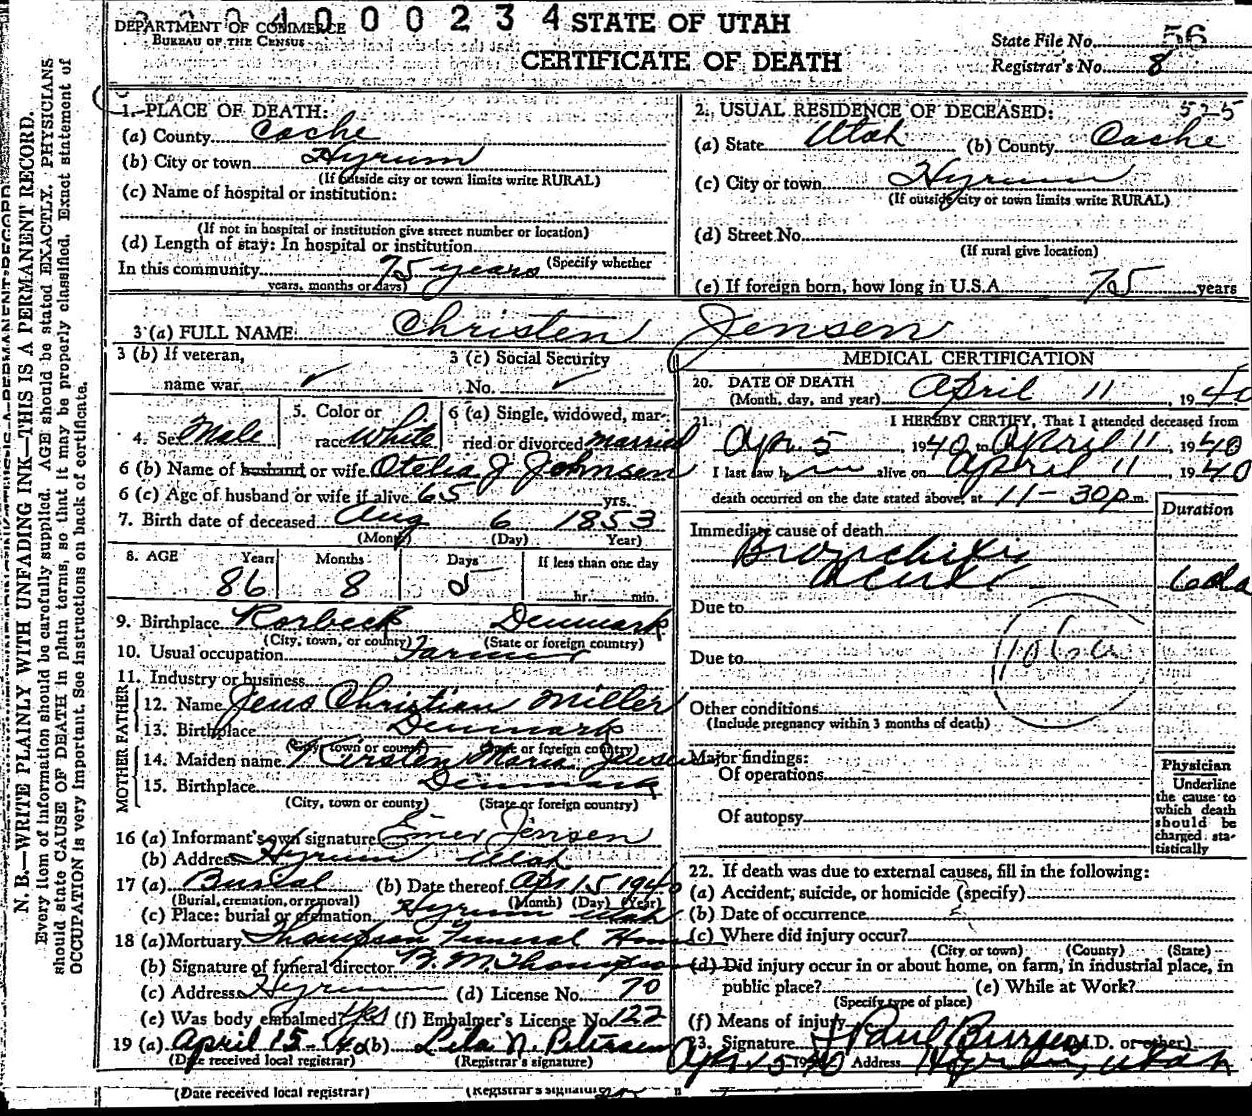 0 0 0 2 3 4
DEPARTMENT OF COMMERCE
BUREAU OF THE CENSUS
STATE OF UTAH
CERTIFICATE OF DEATH
State File No. 56
Registrar's No. 8
N. B.—WRITE PLAINLY WITH UNFADING INK—THIS IS A PERMANENT RECORD.
Every item of information should be carefully supplied. AGE should be stated EXACTLY. PHYSICIANS
should state CAUSE OF DEATH in plain terms, so that it may be properly classified. Exact statement of
OCCUPATION is very important. See instructions on back of certificate.
1. PLACE OF DEATH:
(a) County Cache
(b) City or town Hyrum
(If outside city or town limits write RURAL)
(c) Name of hospital or institution:
(If not in hospital or institution give street number or location)
(d) Length of stay: In hospital or institution
(Specify whether
In this community 75 years
years, months or days)
2. USUAL RESIDENCE OF DECEASED: 525
(a) State Utah (b) County Cache
(c) City or town Hyrum
(If outside city or town limits write RURAL)
(d) Street No.
(If rural give location)
(e) If foreign born, how long in U.S.A. 75 years
3 (a) FULL NAME Christen Jensen
3 (b) If veteran,
name war ✓
3 (c) Social Security
No. ✓
4. Sex Male
5. Color or
race White
6 (a) Single, widowed, mar-
ried or divorced married
6 (b) Name of husband or wife Otelia J Johnsen
6 (c) Age of husband or wife if alive 65 yrs.
7. Birth date of deceased Aug 6 1853
(Month) (Day) Year)
8. AGE Years Months Days If less than one day
86 8 5 hr. min.
9. Birthplace Rorbeck Denmark
(City, town, or county) (State or foreign country)
10. Usual occupation Farmer
11. Industry or business
FATHER
12. Name Jens Christian Miller
13. Birthplace Denmark
(City, town or county) (State or foreign country)
MOTHER
14. Maiden name Kirsten Maria Jensen
15. Birthplace Denmark
(City, town or county) (State or foreign country)
16 (a) Informant's own signature Elmer Jensen
(b) Address Hyrum Utah
17 (a) Burial (b) Date thereof Apr 15 1940
(Burial, cremation, or removal) (Month) (Day) (Year)
(c) Place: burial or cremation Hyrum Utah
18 (a) Mortuary Thompson Funeral Home
(b) Signature of funeral director N. M. Thompson
(c) Address Hyrum (d) License No. 70
(e) Was body embalmed? Yes (f) Embalmer's License No. 122
19 (a) April 15-40 (b) Lila N. Petersen
(Date received local registrar) (Registrar's signature)
MEDICAL CERTIFICATION
20. DATE OF DEATH
(Month, day, and year) April 11, 1940
21. I HEREBY CERTIFY, That I attended deceased from
Apr. 5, 1940, to April 11, 1940
I last saw him alive on April 11 1940
death occurred on the date stated above, at 11-30 p m.
Duration
Immediate cause of death
Bronchitis
Acute 6da
Due to
Due to
106a
Other conditions
(Include pregnancy within 3 months of death)
Major findings:
Of operations
Of autopsy
Physician
Underline
the cause to
which death
should be
charged sta-
tistically
22. If death was due to external causes, fill in the following:
(a) Accident, suicide, or homicide (specify)
(b) Date of occurrence
(c) Where did injury occur?
(City or town) (County) (State)
(d) Did injury occur in or about home, on farm, in industrial place, in
public place? (e) While at Work?
(Specify type of place)
(f) Means of injury
23. Signature J Paul Burgess (M.D. or other)
Apr. 15 1940 Address Hyrum, Utah
(Date received local registrar) (Registrar's signature)